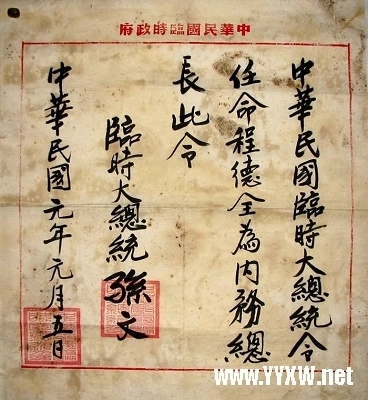 中華民國臨時政府
中華民國臨時大總統令
任命程德全為內務總
長此令
臨時大總統孫文
中華民國元年元月五日
www.YYXW.net